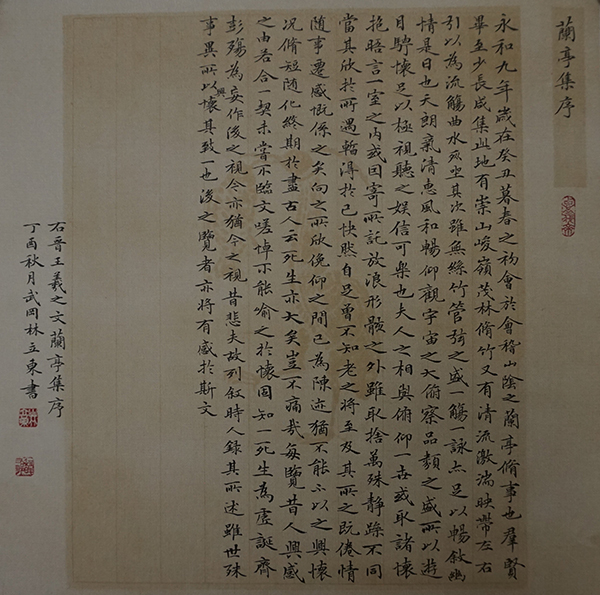 蘭亭集序
永和九年歲在癸丑暮春之初會於會稽山陰之蘭亭脩事也群賢
畢至少長咸集此地有崇山峻嶺茂林脩竹又有清流激湍映帶左右
引以為流觴曲水列坐其次雖無絲竹管弦之盛一觴一詠亦足以暢敘幽
情是日也天朗氣清惠風和暢仰觀宇宙之大俯察品類之盛所以遊
目騁懷足以極視聽之娛信可樂也夫人之相與俯仰一世或取諸懷
抱晤言一室之内或因寄所託放浪形骸之外雖取捨萬殊靜躁不同
當其欣於所遇暫得於己快然自足曾不知老之將至及其所之既倦情
隨事遷感慨係之矣向之所欣俛仰之間已為陳迹猶不能不以之興懷
況脩短隨化終期於盡古人云死生亦大矣豈不痛哉每覽昔人興感
之由若合一契未嘗不臨文嗟悼不能喻之於懷固知一死生為虛誕齊
彭殤為妄作後之視今亦猶今之視昔悲夫故列敘時人錄其所述雖世殊
事異所以興懷其致一也後之覽者亦將有感於斯文
右晉王羲之文蘭亭集序
丁酉秋月武岡林立東書